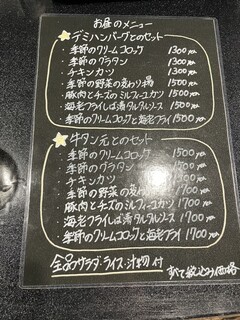 お昼のメニュー
デミハンバーグとのセット
・季節のクリームコロッケ 1300
・季節のグラタン 1300
・チキンカツ 1300
・季節の野菜の変わり揚 1500
・豚肉とチーズのミルフィーユカツ 1500
・海老フライしば漬タルタルソース 1500
・季節のクリームコロッケと海老フライ 1500
牛タン元とのセット
・季節のクリームコロッケ 1500
・季節のグラタン 1500
・チキンカツ 1500
・季節の野菜の変わり揚 1700
・豚肉とチーズのミルフィーユカツ 1700
・海老フライしば漬タルタルソース 1700
・季節のクリームコロッケと海老フライ 1700
全品サラダ・ライス・汁物付
すべて税込み価格